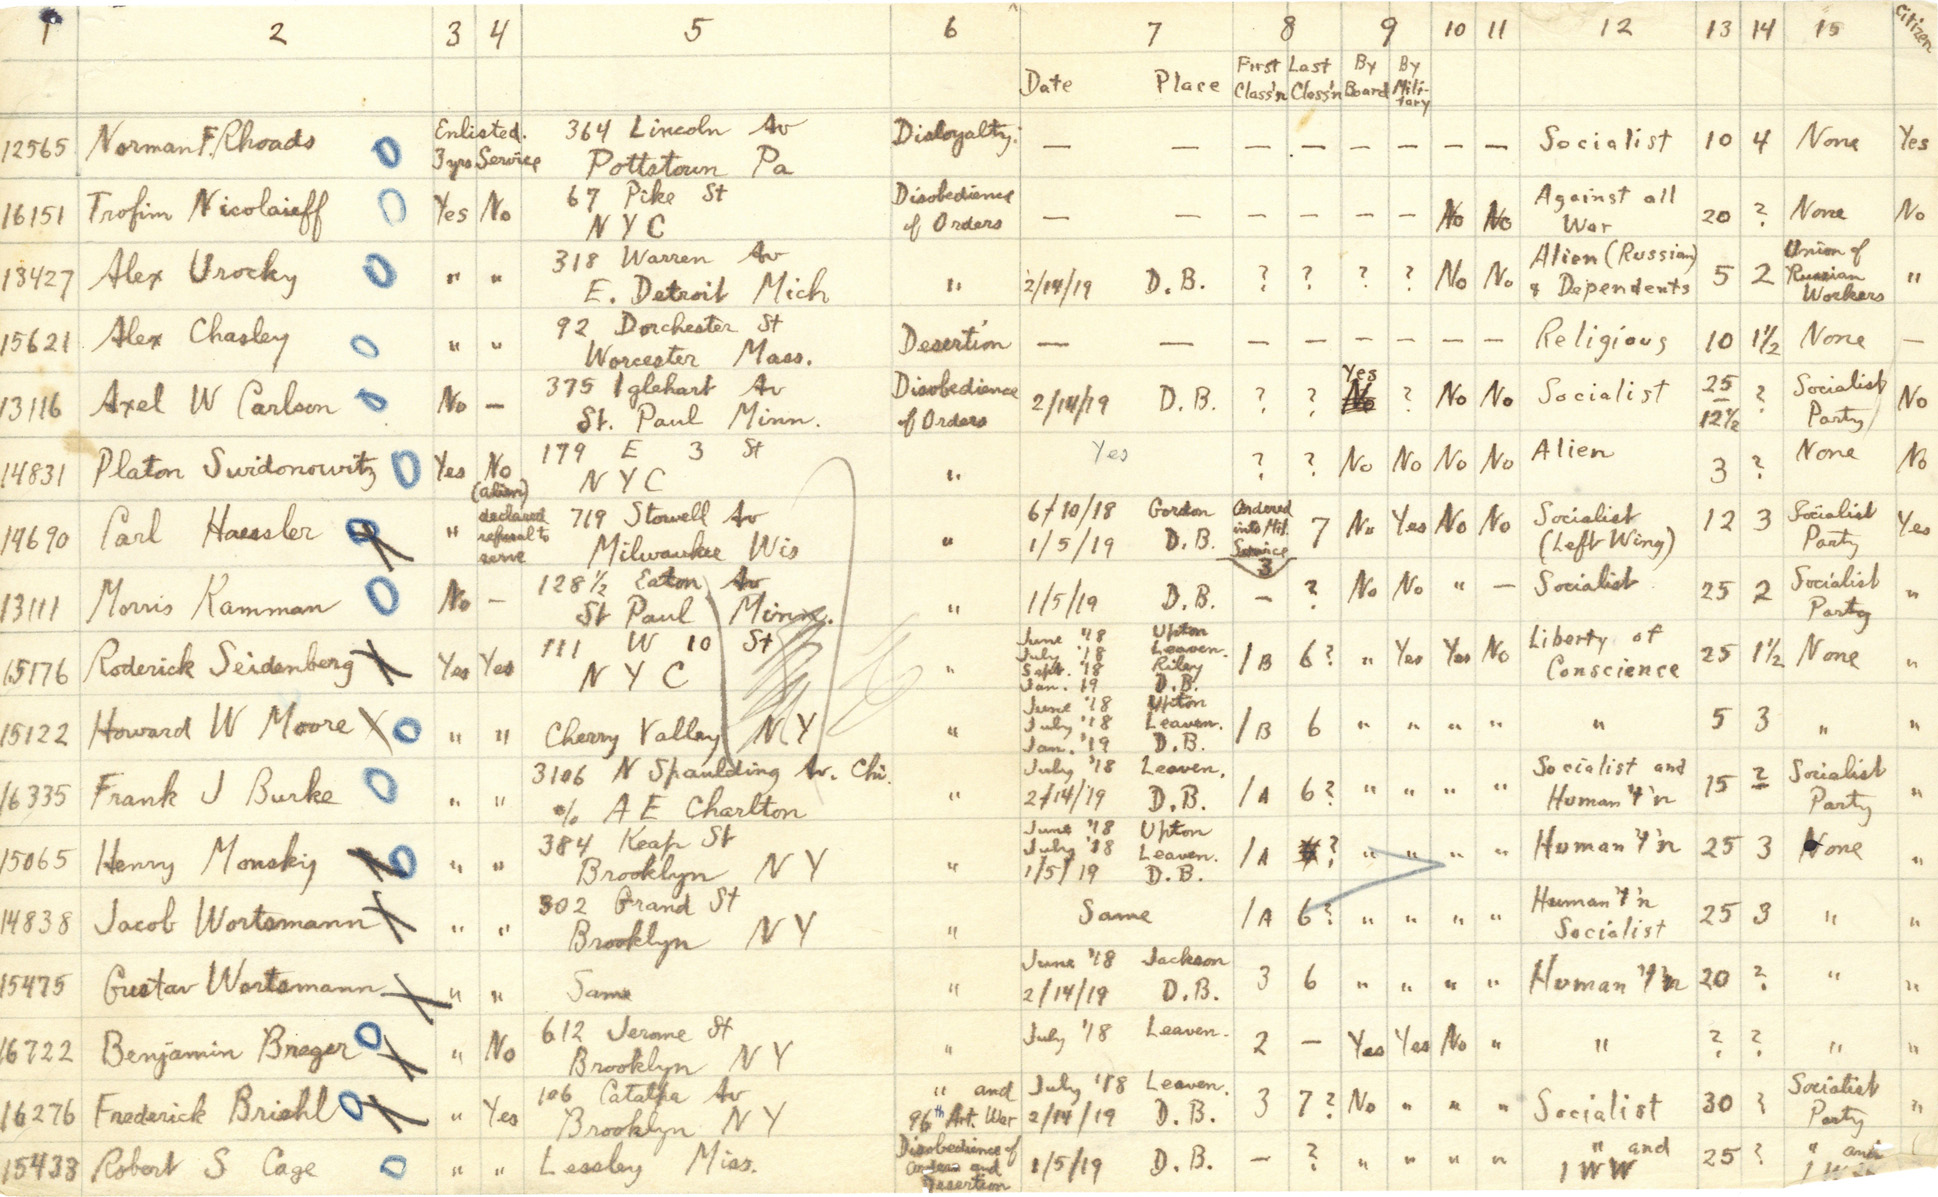 1 2 3 4 5 6 7 8 9 10 11 12 13 14 15 Citizen
Date Place First Class'n Last Class'n By Board By Military
12565 Norman F. Rhoads O Enlisted. 3 yrs Service 364 Lincoln Av Pottstown Pa Disloyalty: — — — — — — — — Socialist 10 4 None Yes
16151 Trofim Nicolaieff O Yes No 67 Pike St N Y C Disobedience of Orders — — — — — — No No Against all War 20 ? None No
13427 Alex Urocky O " " 318 Warren Av E. Detroit Mich " 2/14/19 D.B. ? ? ? ? No No Alien (Russian) & Dependents 5 2 Union of Russian Workers "
15621 Alex Chasley O " " 92 Dorchester St Worcester Mass. Desertion — — — — — — — — Religious 10 1½ None —
13116 Axel W Carlson O No — 375 Iglehart Av St. Paul Minn. Disobedience of Orders 2/14/19 D.B. ? ? Yes No ? No No Socialist 25 12½ ? Socialist Party No
14831 Platon Swidonowitz O Yes No (alien) 179 E 3 St N Y C " Yes ? ? No No No No Alien 3 ? None No
14690 Carl Haessler O X " declared refusal to serve 719 Stowell Av Milwaukee Wis " 6/10/18 Gordon 1/5/19 D.B. Ordered into Mil. Service 7 No Yes No No Socialist (Left Wing) 12 3 Socialist Party Yes
13111 Morris Kamman O No — 128½ Eaton Av St Paul Minn. " 1/5/19 D.B. 3 — ? No No " — Socialist 25 2 Socialist Party "
15176 Roderick Seidenberg X Yes Yes 111 W 10 St N Y C " June '18 Upton July '18 Leaven. Sept. '18 Riley Jan. 19 D.B. 1B 6? " Yes Yes No Liberty of Conscience 25 1½ None "
15122 Howard W Moore X O " " Cherry Valley N Y " June '18 Upton July '18 Leaven. Jan. '19 D.B. 1B 6 " " " " " 5 3 " "
16335 Frank J Burke O " " 3106 N Spaulding Av. Chi. % A E Charlton " July '18 Leaven. 2/14/19 D.B. 1A 6? " " " " Socialist and Human't'n 15 ? Socialist Party "
15065 Henry Monsky X O " " 384 Keap St Brooklyn N Y " June '18 Upton July '18 Leaven. 1/5/19 D.B. 1A ? " " " " Human't'n 25 3 None "
14838 Jacob Wortsmann X " " 302 Grand St Brooklyn N Y " Same 1A 6? " " " " Human't'n Socialist 25 3 " "
15475 Gustav Wortsmann X " " Same " June '18 Jackson 2/14/19 D.B. 3 6 " " " " Human't'n 20 ? " "
16722 Benjamin Breger O X " No 612 Jerome St Brooklyn N Y " July '18 Leaven. 2 — Yes Yes No " " ? ? " "
16276 Frederick Briehl O X " Yes 106 Catalpa Av Brooklyn N Y " and 96th Art. War July '18 Leaven. 2/14/19 D.B. 3 7? No " " " Socialist 30 ? Socialist Party "
15433 Robert S Cage O " " Lessley Miss. Disobedience of Orders and Desertion 1/5/19 D.B. — ? " " " " " and I W W 25 ? " and